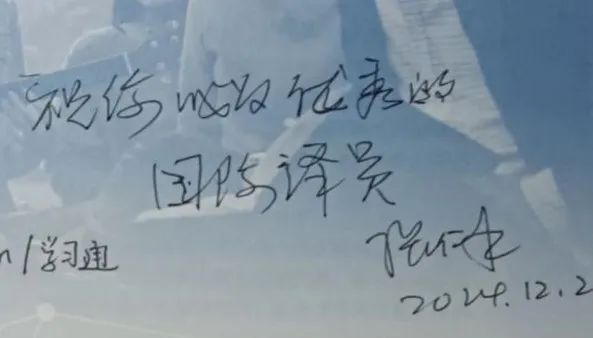 祝你成为优秀的
国际译员
/学习通
2024.12.2